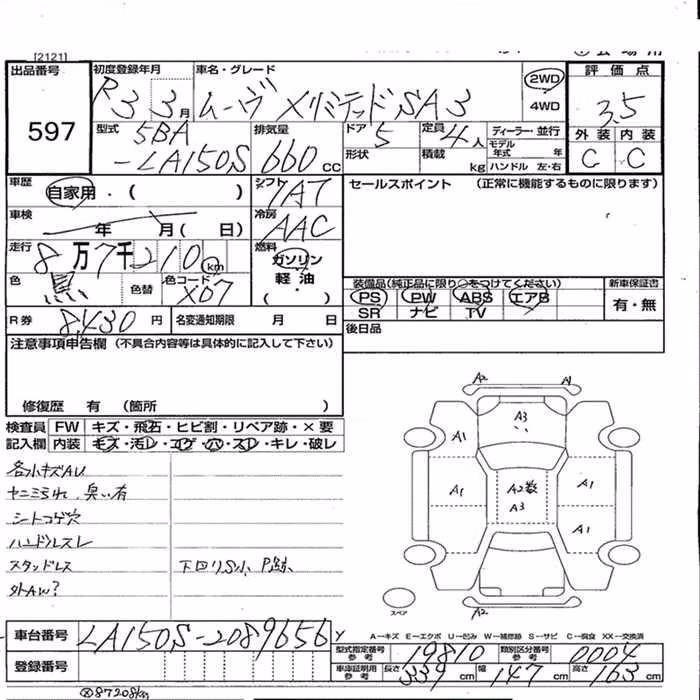 [2121]
出品番号
597
初度登録年月
R3 3月
車名・グレード
ムーヴ XリミテッドSA3
2WD
4WD
評価点
3.5
外装 内装
C C
型式
5BA
-LA150S
排気量
660 CC
ドア 5
形状
定員 4人
積載 kg
ディーラー・並行
モデル
年式 年
ハンドル 左・右
車歴
自家用・( )
シフト
7AT
セールスポイント (正常に機能するものに限ります)
車検
年 月( 日)
冷房
AAC
走行
8万7千210km
燃料
ガソリン
軽油
( ・ )
色
黒
色替
色コード
X07
装備品(純正品に限り○をつけてください)
PS PW ABS エアB
SR ナビ TV
新車保証書
有・無
R券 8,430円
名変通知期限 月 日
後日品
注意事項申告欄 (不具合内容等は具体的に記入して下さい)
修復歴 有 (箇所 )
検査員 FW キズ・飛石・ヒビ割・リペア跡・×要
記入欄 内装 キズ・汚レ・コゲ・穴・スレ・キレ・破レ
各小キズAU
ヤニヨゴレ、臭い有
シートコゲ穴
ハンドルスレ
スタッドレス
下回りS小、P跡、
外AW?
A2 A1
A3
A1
A1 A2数 A1
A3
A1
A2
スペア
A−キズ E−エクボ U−凹み W−補修跡 S−サビ C−腐食 XX−交換済
車台番号 LA150S-2089656 Y
登録番号
型式指定番号
参考 19810
類別区分番号
参考 0004
車庫証明用
参考 長さ 339 cm 幅 147 cm 高さ 163 cm
87208km